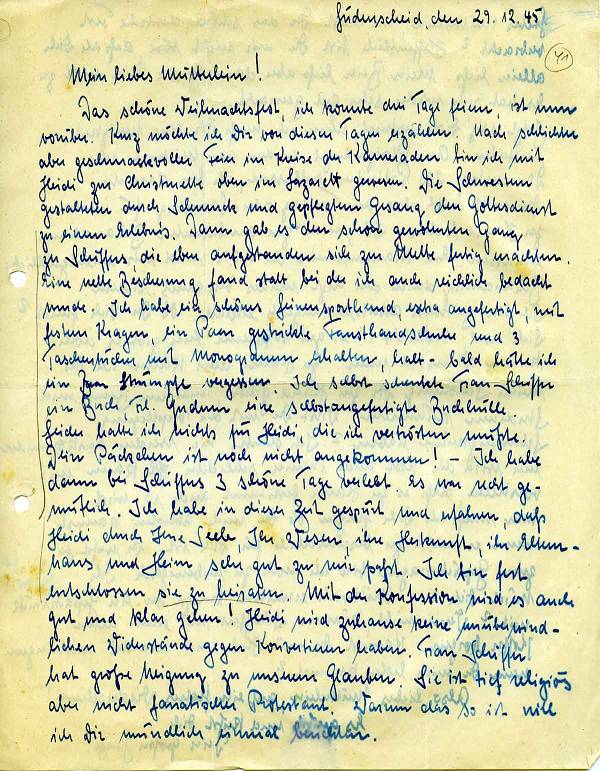 Lüdenscheid, den 29.12.45
41
Mein liebes Mütterlein!
Das schöne Weihnachtsfest, ich konnte drei Tage feiern, ist nun
vorüber. Kurz möchte ich Dir von diesen Tagen erzählen. Nach schlichter
aber geschmackvoller Feier im Kreise der Kameraden bin ich mit
Heidi zur Christmette oben im Lazarett gewesen. Die Schwestern
gestalteten durch Schmuck und gepflegten Gesang den Gottesdienst
zu einem Erlebnis. Dann gab es den schon gewohnten Gang
zu Schiffers, die eben aufgestanden sich zur Mette fertig machten.
Eine nette Bescherung fand statt bei der ich auch reichlich bedacht
wurde. Ich habe ein schönes Leinensporthemd, extra angefertigt, mit
festem Kragen, ein Paar gestrickte Fausthandschuhe und 3
Taschentücher mit Monogramm erhalten, halt - bald hätte ich
ein Paar Strümpfe vergessen. Ich selbst schenkte Frau Schiffer
ein Buch Frl. Gudrun eine selbstangefertigte Buchhülle.
Leider hatte ich nichts für Heidi, die ich vertrösten mußte.
Dein Päckchen ist noch nicht angekommen! - Ich habe
dann bei Schiffers 3 schöne Tage verlebt. Es war recht ge-
mütlich. Ich habe in dieser Zeit gespürt und erfahren, daß
Heidi durch Ihre Seele, Ihr Wesen, ihre Herkunft, ihr Eltern-
haus und Heim sehr gut zu mir paßt. Ich bin fest
entschlossen sie zu heiraten. Mit der Konfession wird es auch
gut und klar gehen! Heidi wird zuhause keine unüberwind-
lichen Widerstände gegen Konvertieren haben. Frau Schiffer
hat große Neigung zu unserem Glauben. Sie ist tief religiös
aber nicht fanatischer Protestant. Warum das so ist will
ich Dir mündlich einmal berichten.